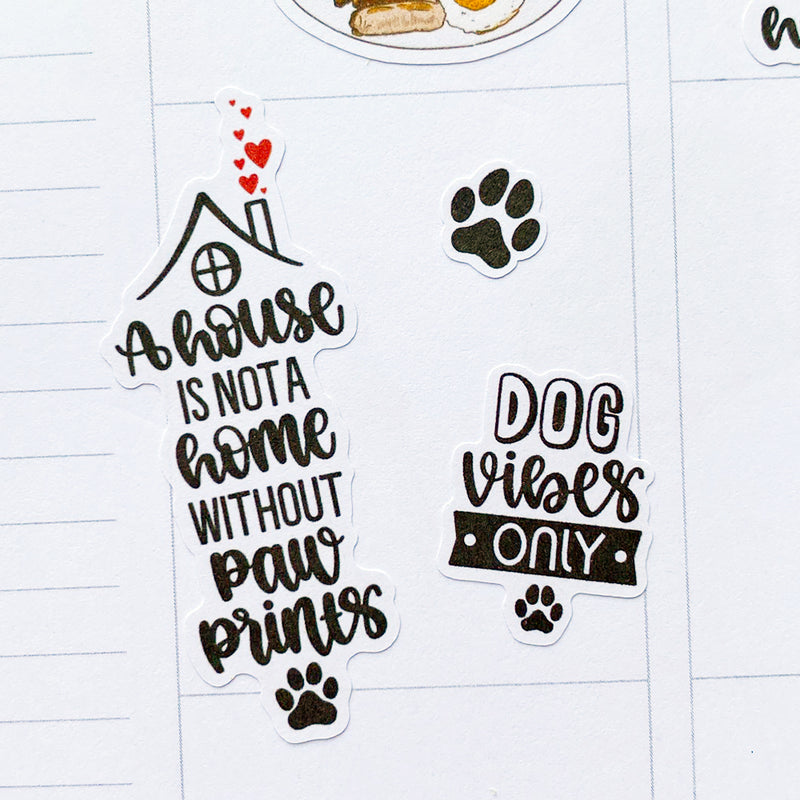 A house
IS NOT A
home
WITHOUT
paw
prints
DOG
vibes
ONLY